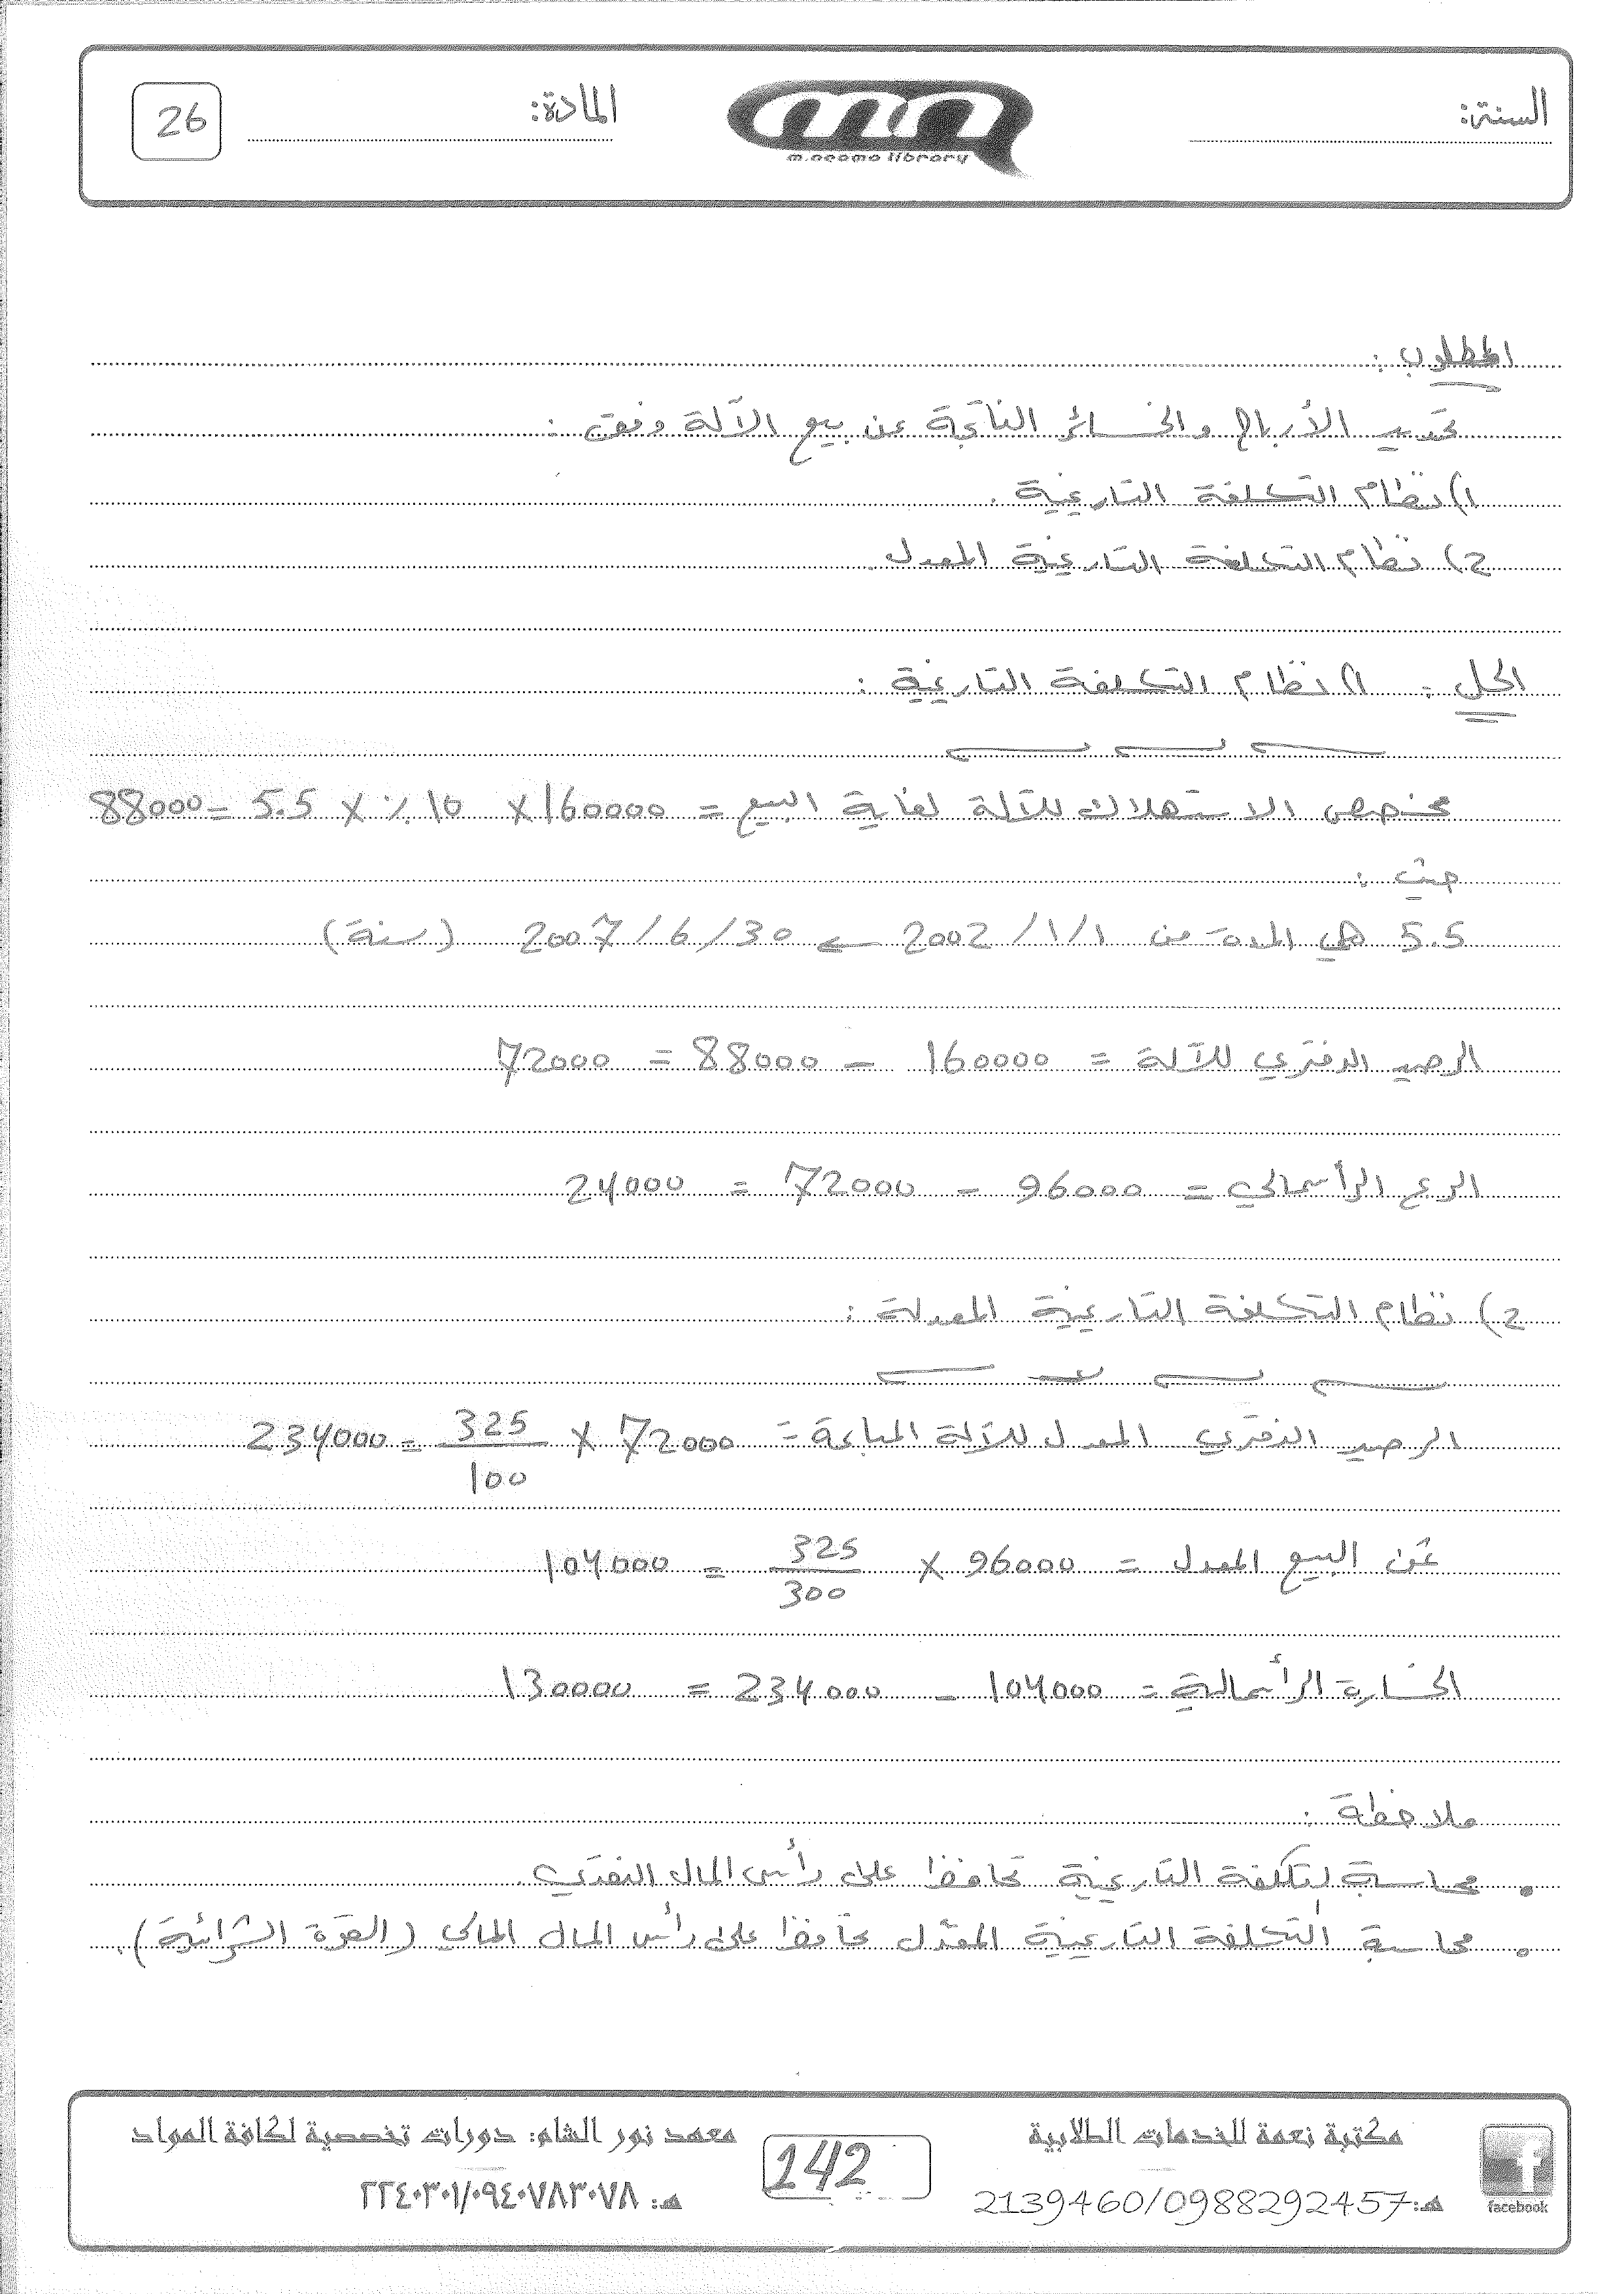 السنة:
m.neama library
المادة:
26
المطلوب :
تحديد الأرباح والخسائر الناتجة عن بيع الآلة وفق :
1) نظام التكلفة التاريخية .
2) نظام التكلفة التاريخية المعدل .
الحل : 1) نظام التكلفة التاريخية :
مخصص الاستهلاك للآلة لغاية البيع = 160000 × 10 % × 5.5 = 88000
حيث :
5.5 هي المدة من 1/1/2002 ← 30/6/2007 (سنة)
الرصيد الدفتري للآلة = 160000 - 88000 = 72000
الربح الرأسمالي = 96000 - 72000 = 24000
2) نظام التكلفة التاريخية المعدلة :
الرصيد الدفتري المعدل للآلة المباعة = 72000 × 325/100 = 234000
ثمن البيع المعدل = 96000 × 325/300 = 104000
الخسارة الرأسمالية = 104000 - 234000 = 130000
ملاحظة :
• محاسبة لتكلفة التاريخية تحافظ على رأس المال النقدي .
• محاسبة التكلفة التاريخية المعدّل تحافظ على رأس المال المالي (القوة الشرائية) .
facebook
مكتبة نعمة للخدمات الطلابية
هـ: 2139460/0988292457
142
معهد نور الشام: دورات تخصصية لكافة المواد
هـ: ٢٢٤٠٣٠١/٠٩٤٠٧٨٣٠٧٨